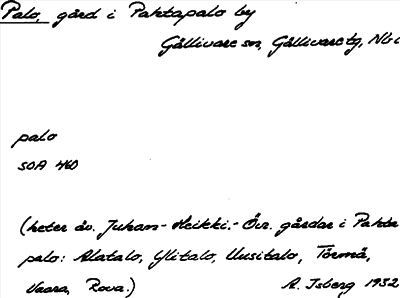 Palo, gård i Pahtapalo by
Gällivare sn, Gällivare tg, Nbt
palo
SOA 460
(heter äv. Juhan-Heikki.- Övr. gårdar i Pahta
palo: Alatalo, Ylitalo, Uusitalo, Törmä,
Vaara, Rova.)
A. Isberg 1932